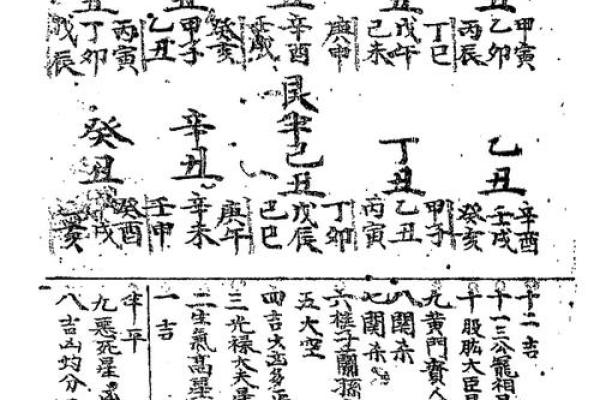 甲寅
乙卯
丙辰
丁巳
戊午
己未
庚申
辛酉
壬戌
癸亥
甲子
乙丑
丙寅
丁卯
戊辰
乙丑
丁丑
艮半己丑
辛丑
癸丑
辛酉
壬戌
癸亥
甲子
乙丑
丙寅
丁卯
戊辰
己巳
庚午
辛未
壬申
癸酉
戌
亥
十二吉
十一三公
十股肱大臣
九黃門
八関杀
七関杀
六
五大空
四吉
三光禄大夫星
二生氣高星
一吉
半平
九惡死星
八吉凶均分